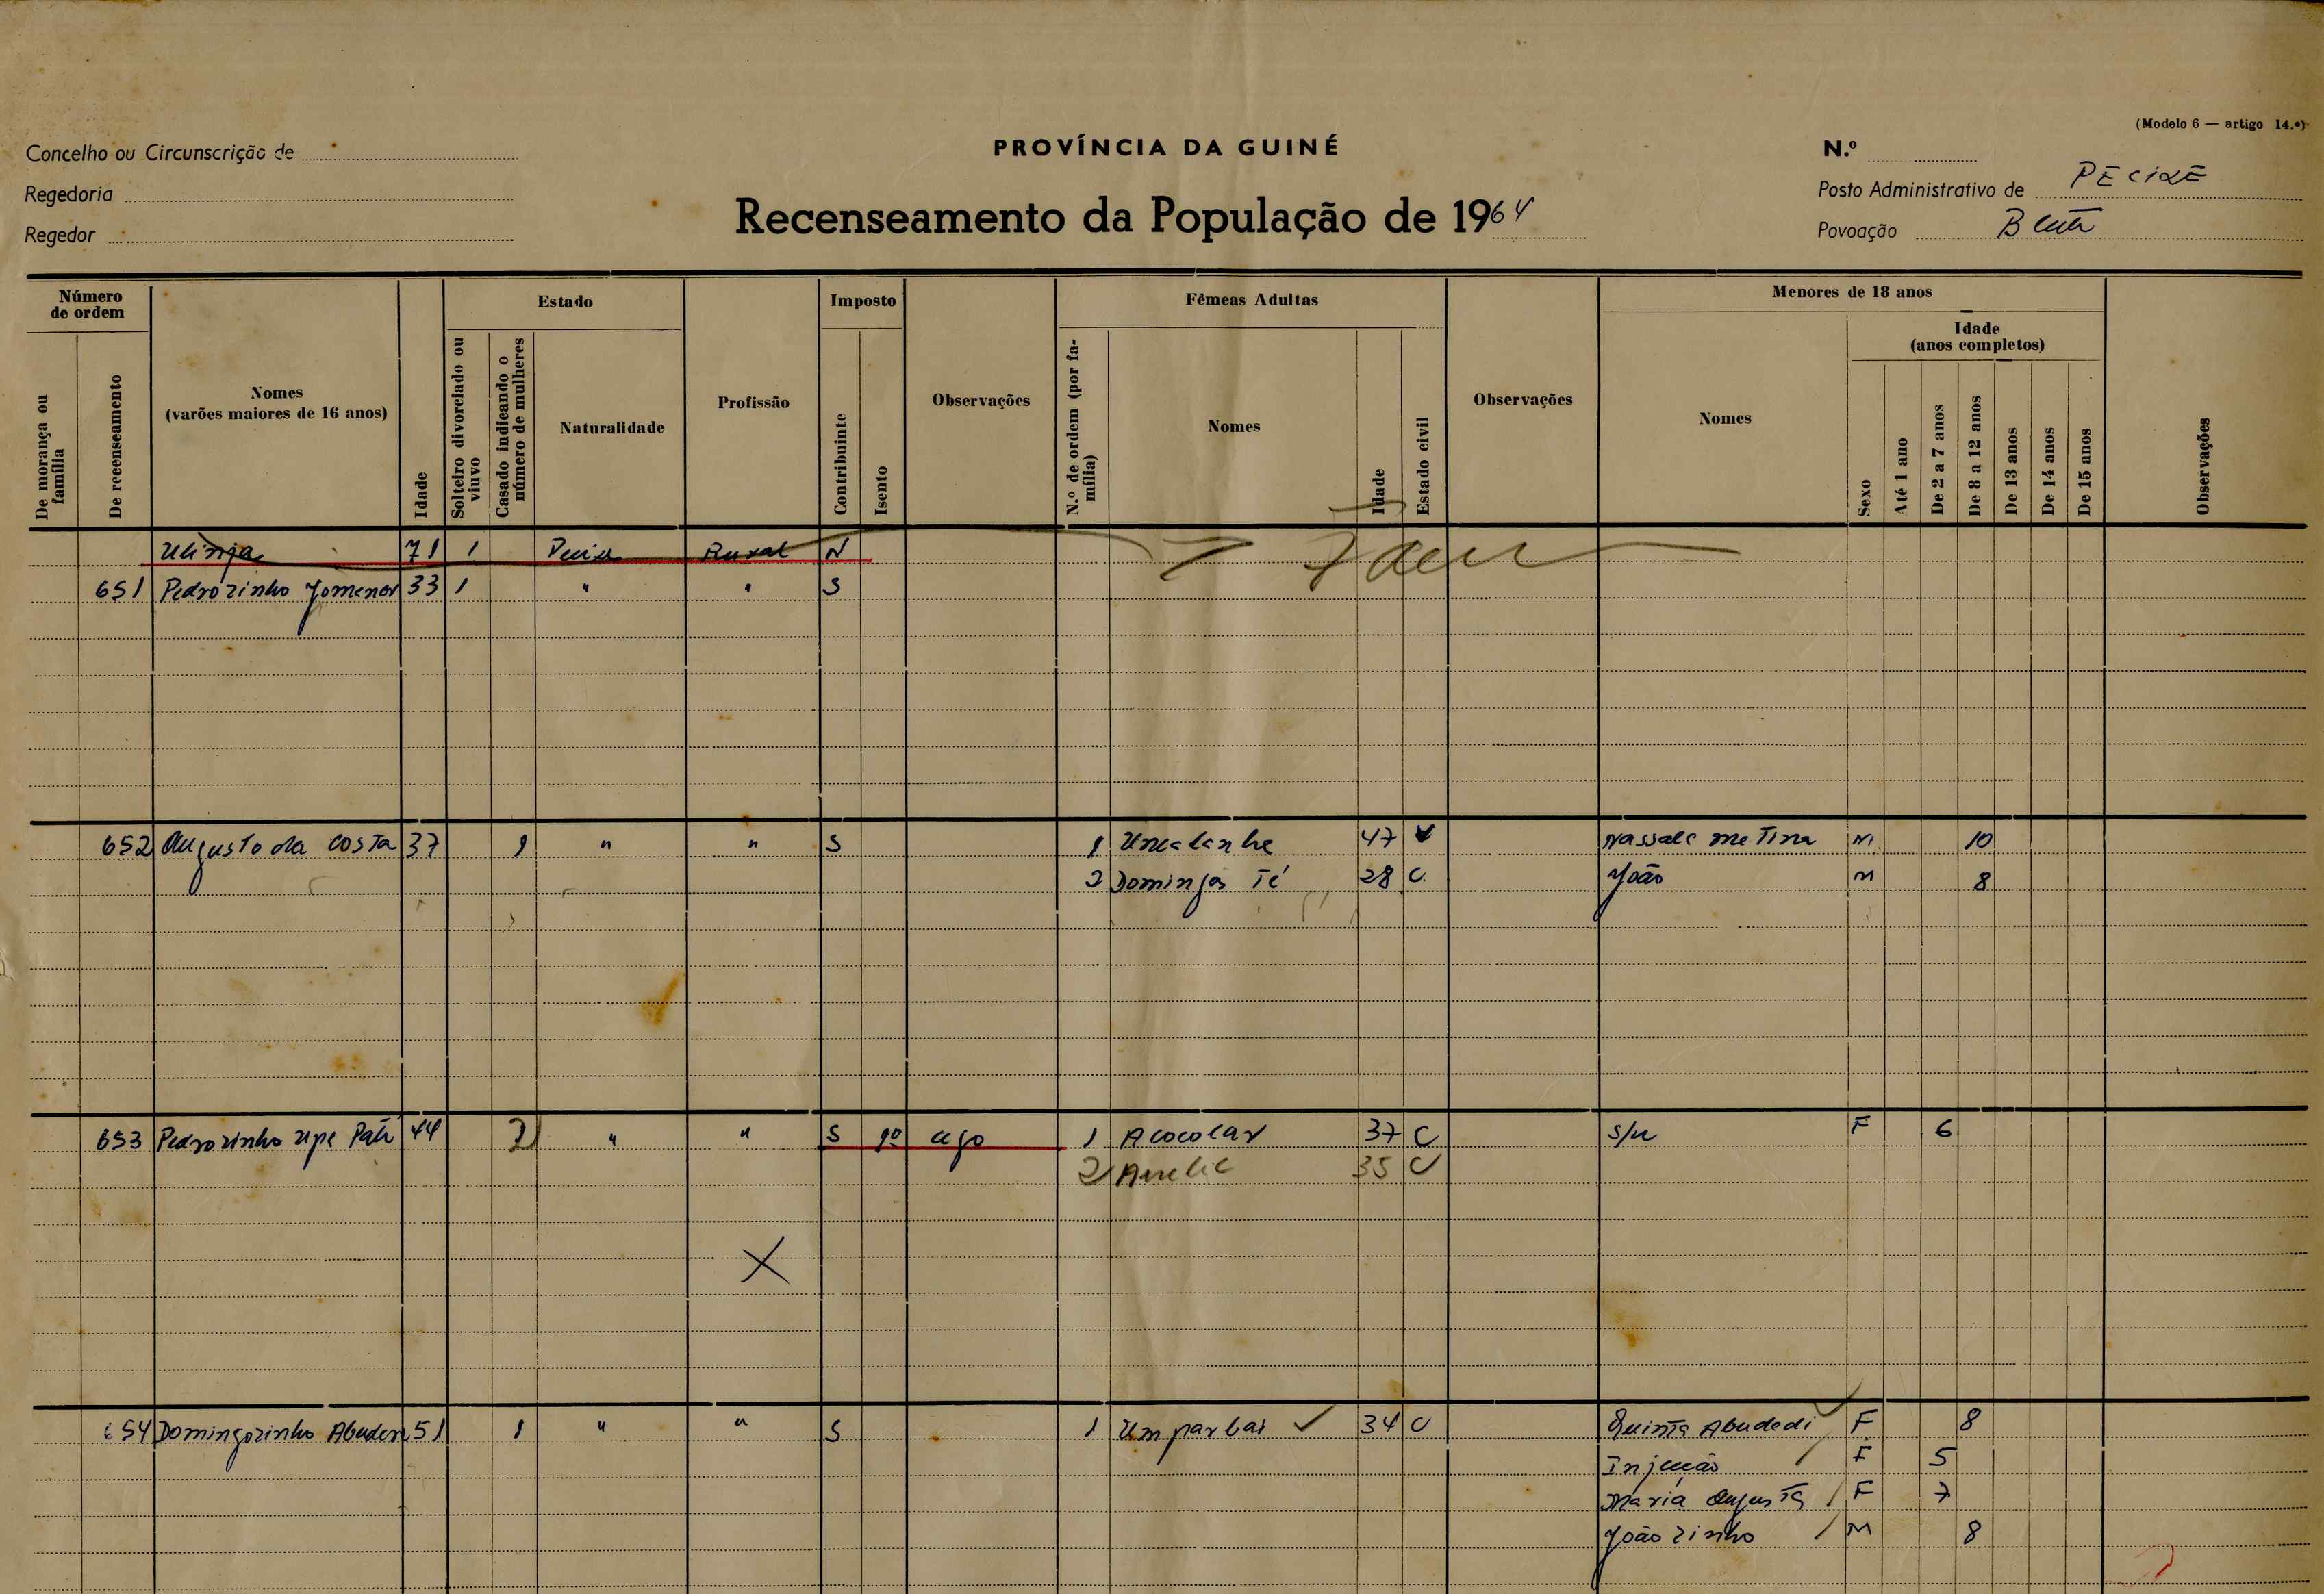 (Modelo 6 — artigo 14.º)
Concelho ou Circunscrição de
PROVÍNCIA DA GUINÉ
N.º
Regedoria
Posto Administrativo de PECIXE
Recenseamento da População de 1964
Regedor
Povoação
Número de ordem
Estado
Imposto
Fêmeas Adultas
Menores de 18 anos
Idade
(anos completos)
De morança ou família
De recenseamento
Nomes
(varões maiores de 16 anos)
Idade
Solteiro divorciado ou viuvo
Casado indicando o número de mulheres
Naturalidade
Profissão
Contribuinte
Isento
Observações
N.º de ordem (por família)
Nomes
Idade
Estado civil
Observações
Nomes
Sexo
Até 1 ano
De 2 a 7 anos
De 8 a 12 anos
De 13 anos
De 14 anos
De 15 anos
Observações
71 1 Rural N
651 Pedrozinho 33 1 " " S
652 Augusto da Costa 37 1 " " S 1 47 10
2 Domingas Té 28 C João M 8
653 Pedrozinho 44 2 " " S 1 Acocolar 37 C S/n F 6
2 35 C
X
654 Domingozinho 51 1 " " S 1 Umparbai ✓ 34 C Quinta Abudedi F 8
Injecção F 5
Maria Augusta F 7
Joãozinho M 8